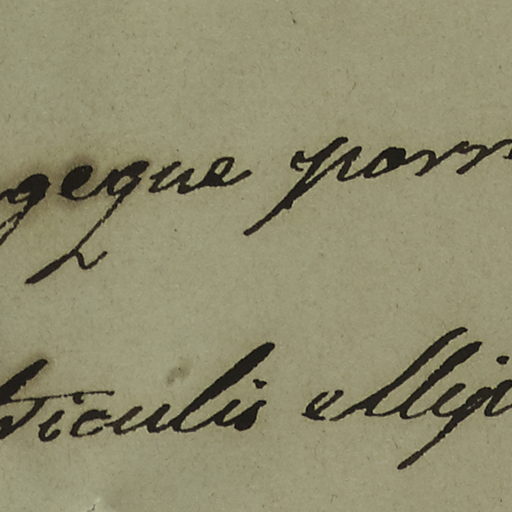 geque porr
ticulis ellip